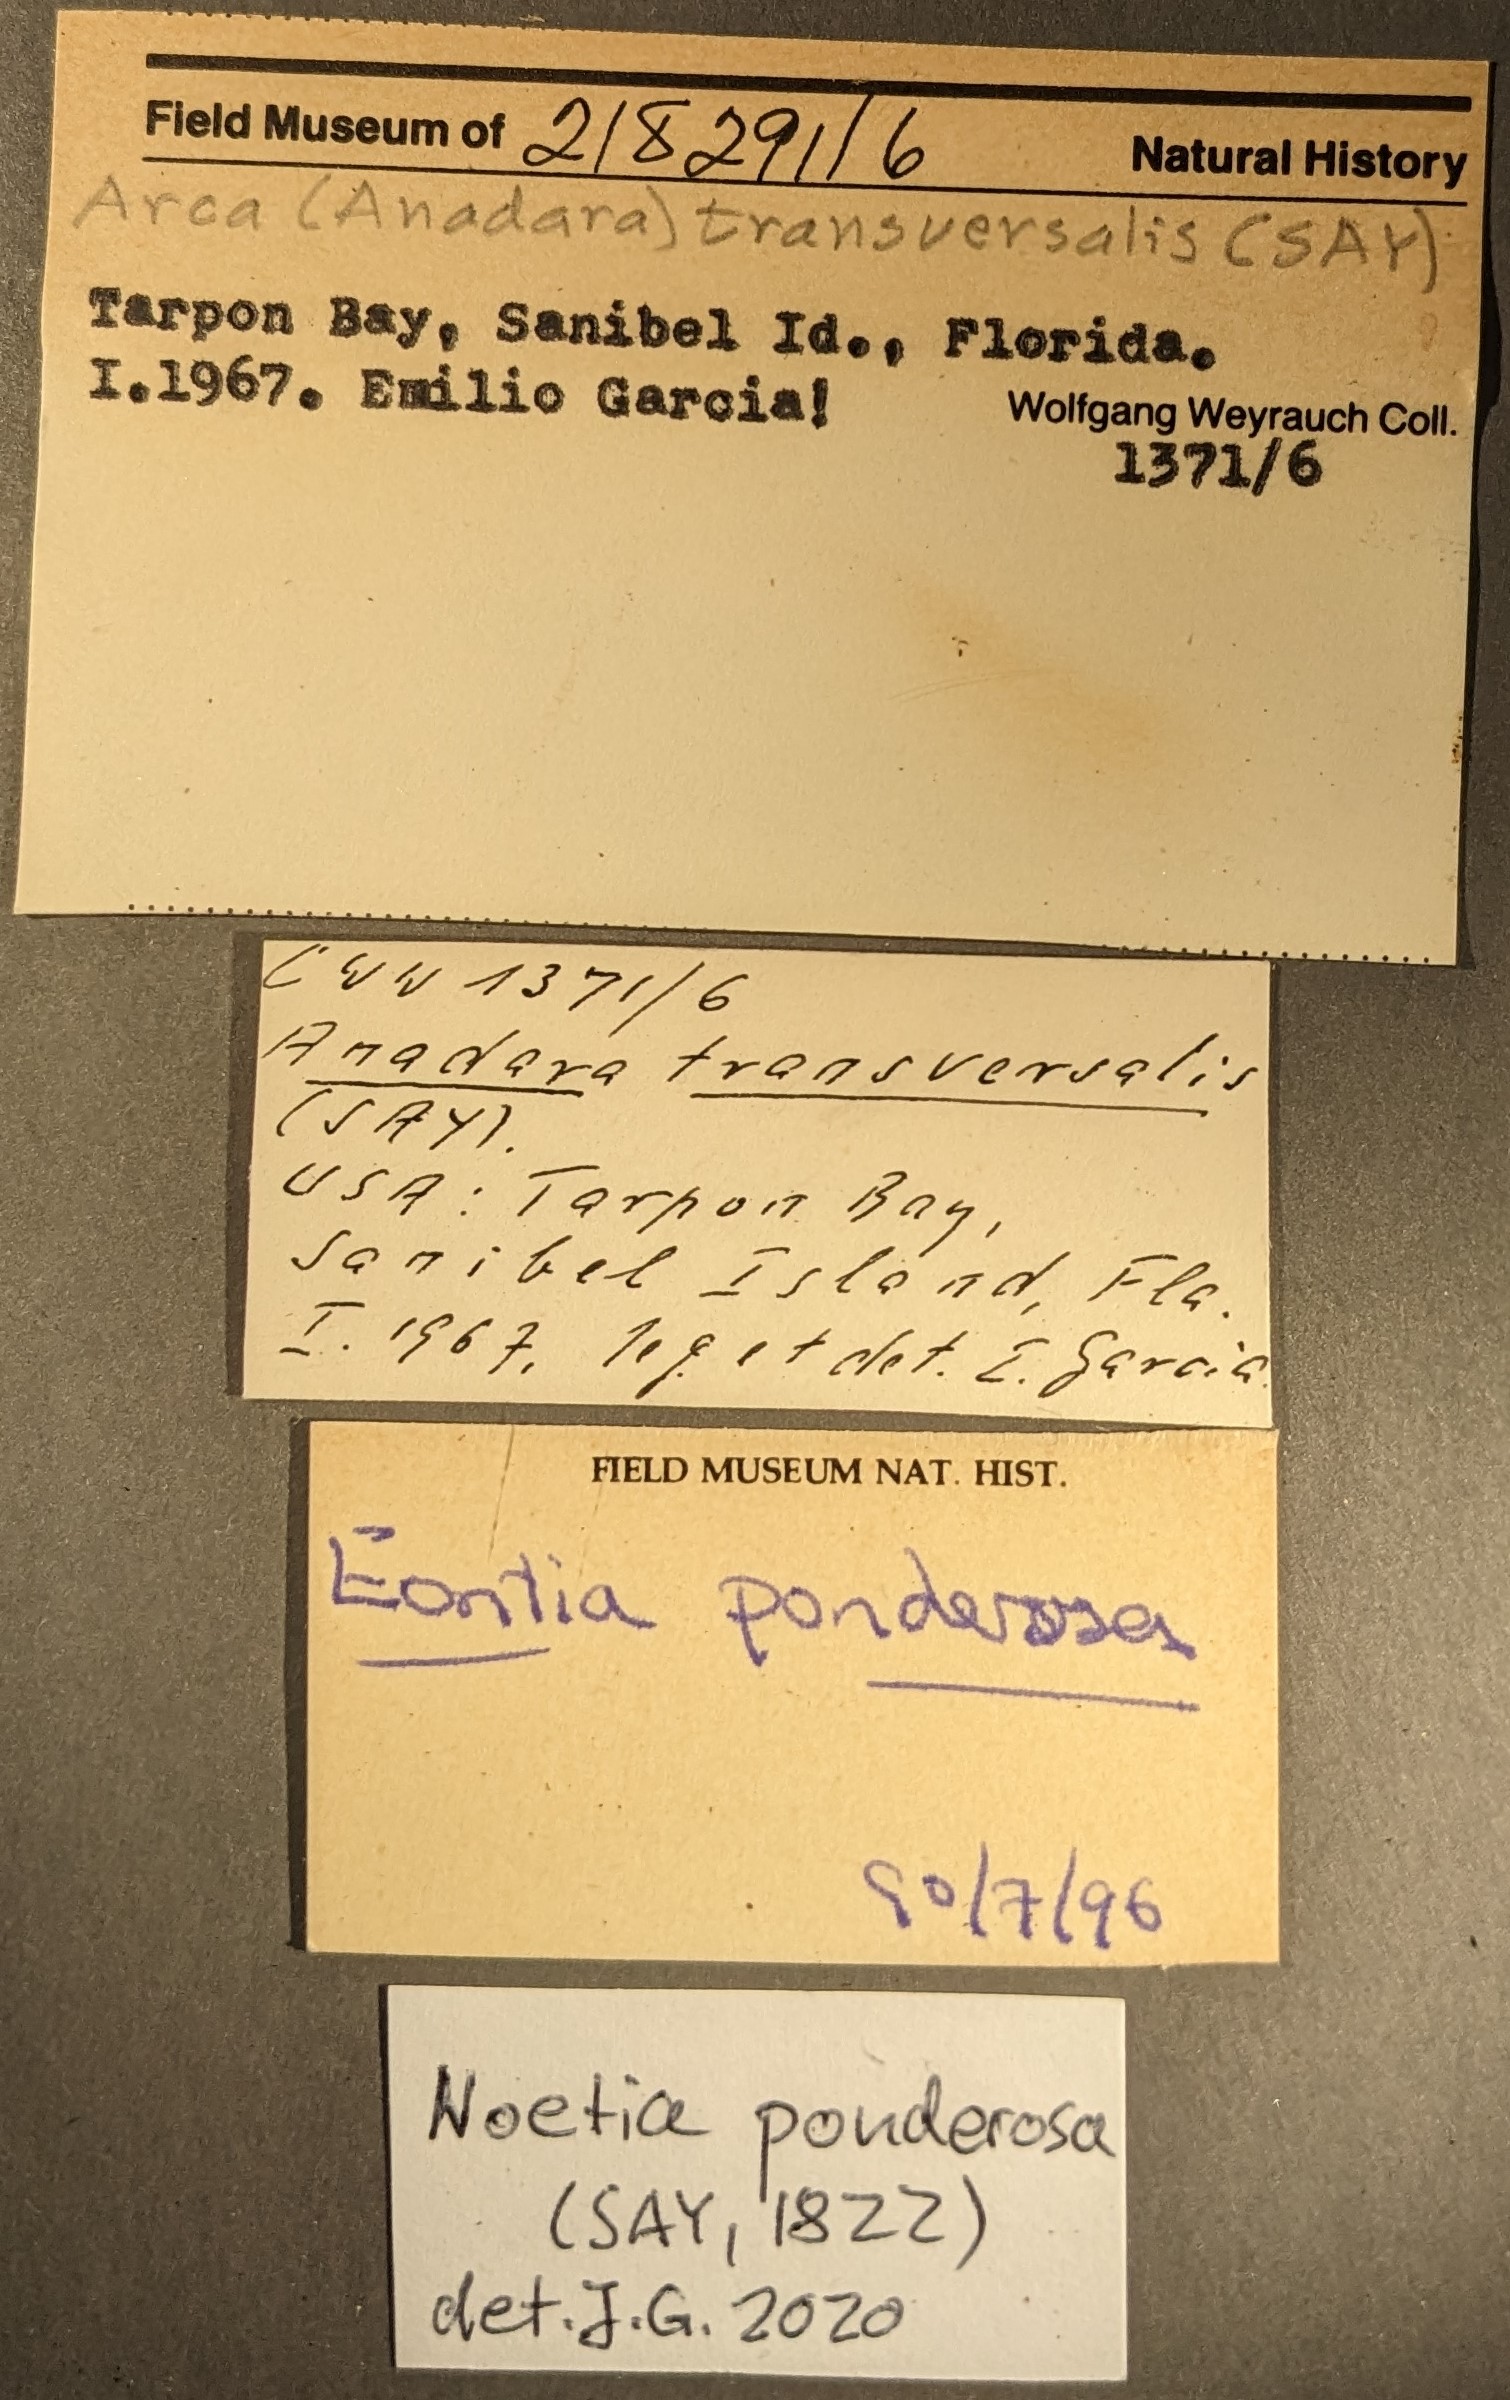 Field Museum of 218291/6 Natural History
Arca (Anadara) transversalis (SAY)
Tarpon Bay, Sanibel Id., Florida.
I.1967. Emilio Garcia!
Wolfgang Weyrauch Coll.
1371/6
CWW 1371/6
Anadara transversalis
(SAY).
USA: Tarpon Bay,
Sanibel Island, Fla.
I. 1967, leg et det. I. Garcia.
FIELD MUSEUM NAT. HIST.
Eontia ponderosa
90/7/96
Noetia ponderosa
(SAY, 1822)
det. J.G. 2020